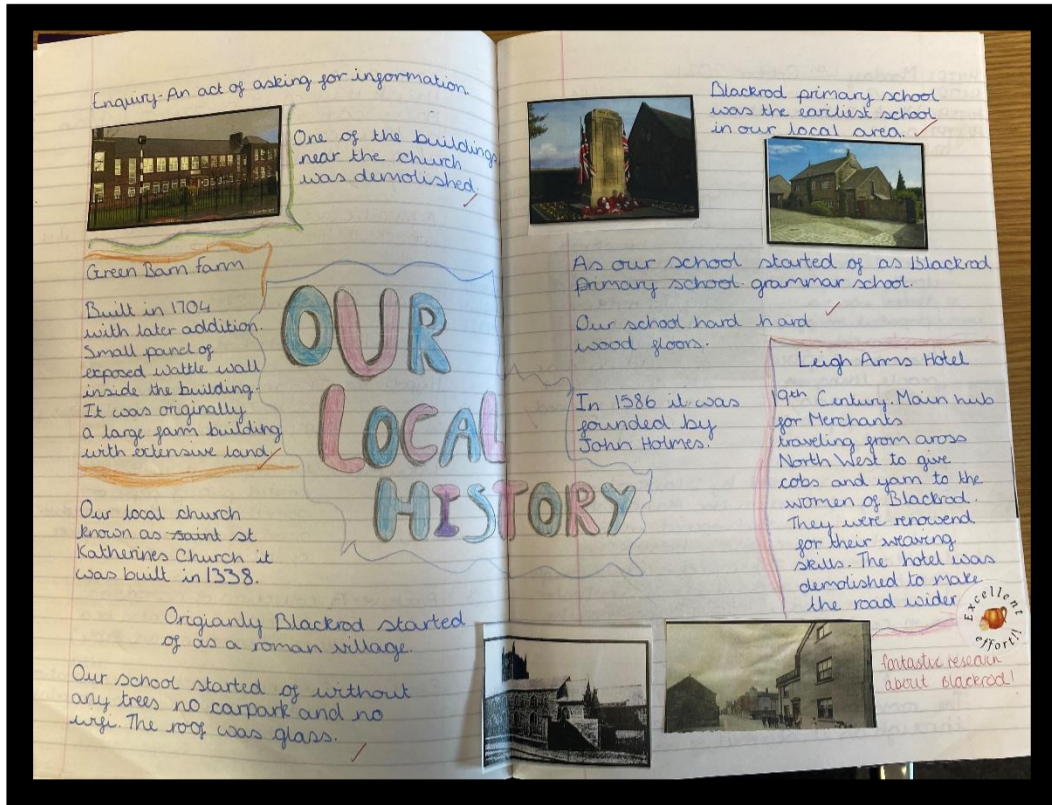 Enquiry-An act of asking for information.
One of the buildings
near the church
was demolished.
Green Barn Farm
Built in 1704
with later addition.
Small panel of
exposed wattle wall
inside the building.
It was originally
a large farm building
with extensive land
Our local church
known as saint st
Katherines Church it
was built in 1338.
Origianly Blackrod started
of as a roman village.
Our school started of without
any trees no carpark and no
wifi. The roof was glass.
OUR
LOCAL
HISTORY
Blackrod primary school
was the eariliest school
in our local area.
As our school started of as Blackrod
primary school grammar school.
Our school hard hard
wood floors.
In 1586 it was
founded by
John Holmes.
Leigh Arms Hotel
19th Century. Main hub
for Merchants
traveling from aross
North West to give
cobs and yarn to the
women of Blackrod.
They were renowend
for their weaving
skills. The hotel was
demolished to make
the road wider
Excellent
effort!!
fantastic research
about Blackrod!